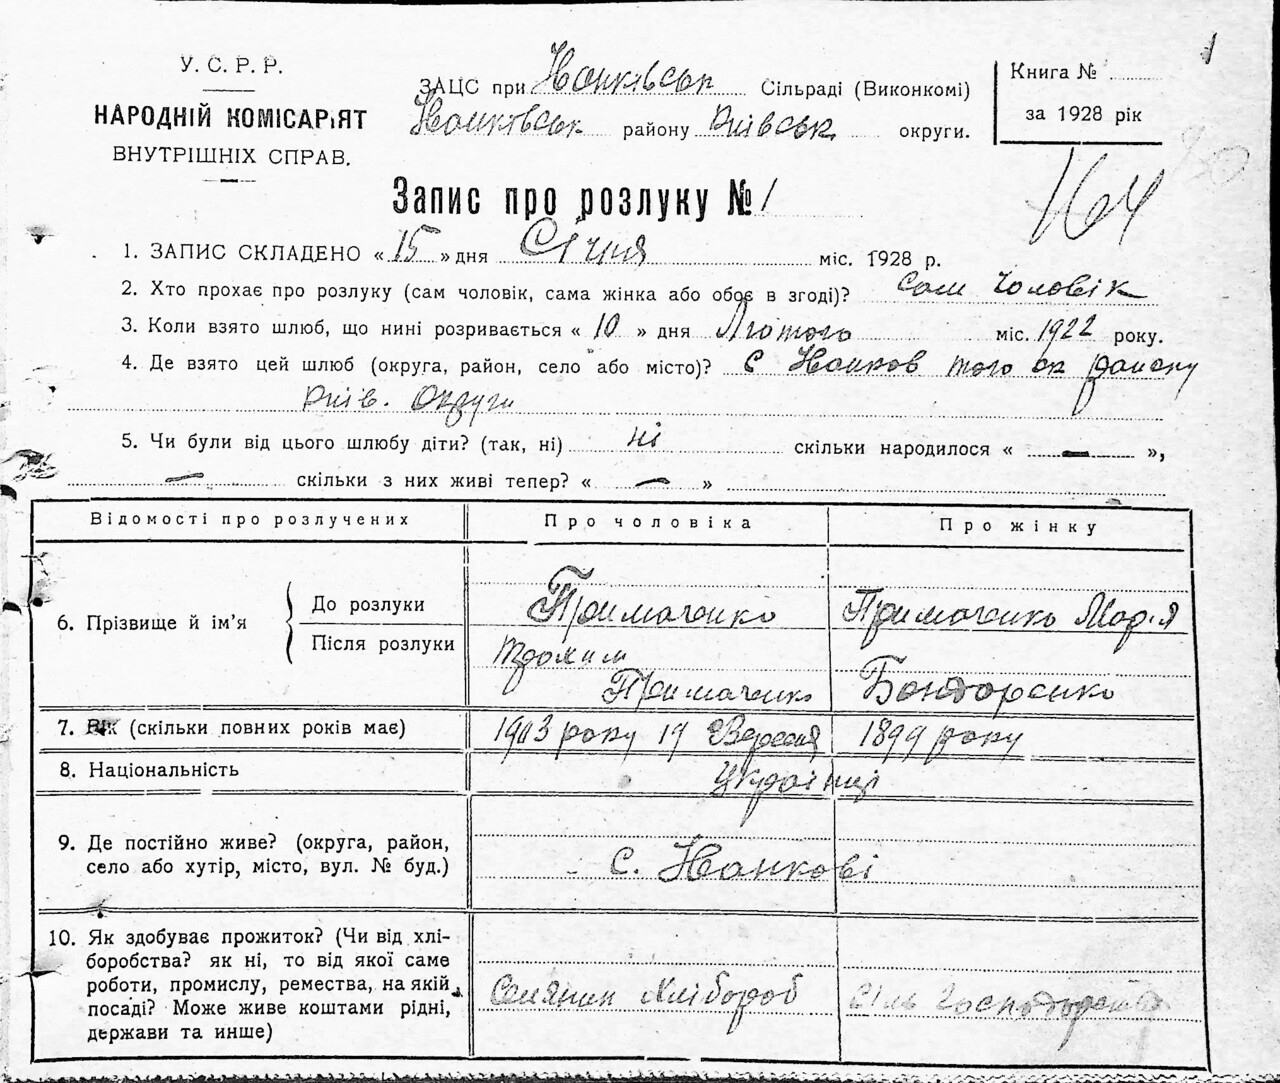 У. С. Р. Р.
НАРОДНІЙ КОМІСАРІЯТ
ВНУТРІШНІХ СПРАВ.
ЗАЦС при Іванківськ Сільраді (Виконкомі)
Іванківськ району Київськ округи.
Книга №
за 1928 рік
164
Запис про розлуку № 1
1. ЗАПИС СКЛАДЕНО « 15 » дня Січня міс. 1928 р.
2. Хто прохає про розлуку (сам чоловік, сама жінка або обоє в згоді)? Сам чоловік
3. Коли взято шлюб, що нині розривається « 10 » дня Лютого міс. 1922 року.
4. Де взято цей шлюб (округа, район, село або місто)? с Іванков того ж району
Київ. Округи
5. Чи були від цього шлюбу діти? (так, ні) ні скільки народилося « — »,
— скільки з них живі тепер? « — »
Відомості про розлучених Про чоловіка Про жінку
6. Прізвище й ім’я
До розлуки Примаченко Примаченко Марія
Після розлуки
Примаченко Бондаренко
7. Вік (скільки повних років має) 1903 року 19 Вересня 1899 року
8. Національність Українці
9. Де постійно живе? (округа, район,
село або хутір, місто, вул. № буд.) с. Іванкові
10. Як здобуває прожиток? (Чи від хлі-
боробства? як ні, то від якої саме
роботи, промислу, ремества, на якій Селянин Хлібороб
посаді? Може живе коштами рідні,
держави та инше)